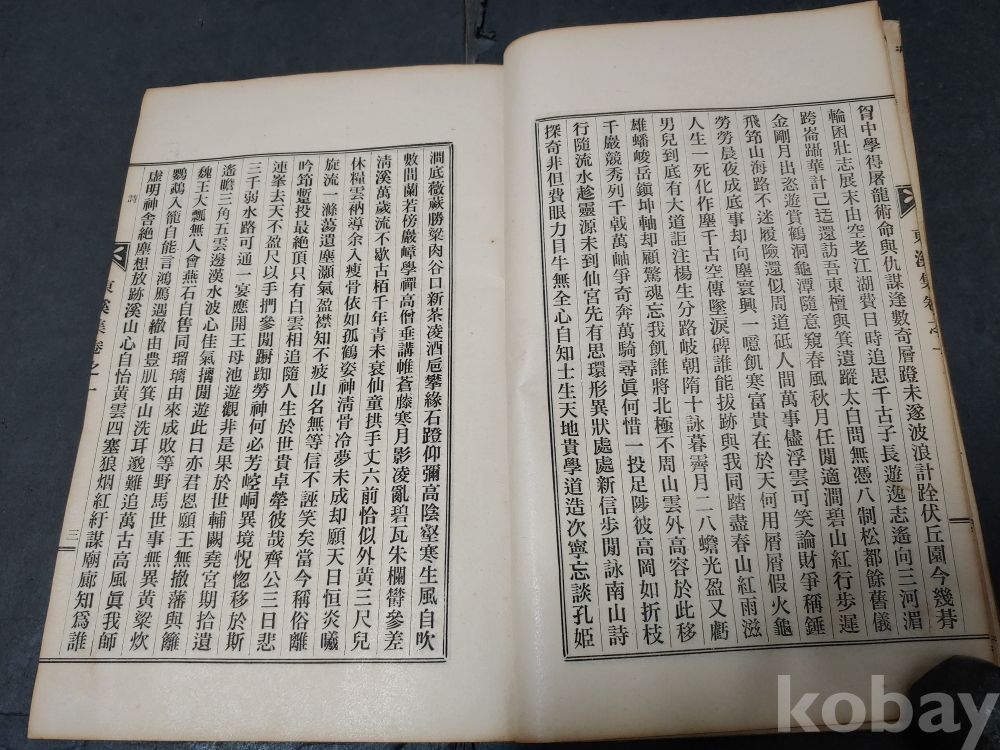 胷中學得屠龍術命與仇謀逢數奇層蹬未遂波浪計跧伏丘園今幾朞
輪囷壯志展未由空老江湖費日時追思千古子長遊逸志遙向三河湄
跨崙躡華計已迃還訪吾東檀與箕遺蹤太白問無憑八制松都餘舊儀
金剛月出恣遊賞鶴洞龜潭隨意窺春風秋月任閒適澗碧山紅行步遲
飛筇山海路不迷履險還似周道砥人間萬事儘浮雲可笑論財爭稱錘
勞勞晨夜成底事却向塵寰興一噫飢寒富貴在於天何用屑屑假火龜
人生一死化作塵千古空傳墜淚碑誰能拔跡與我同踏盡春山紅雨滋
男兒到底有大道詎注楊生分路岐朝隋十詠暮霽月二八蟾光盈又虧
雄蟠峻岳鎭坤軸却顧驚魂忘我飢誰將北極不周山雲外高容於此移
千嚴競秀列千戟萬岫爭奇奔萬騎尋眞何惜一投足陟彼高岡如折枝
行隨流水趁靈源未到仙宮先有思環形異狀處處新信步閒詠南山詩
探奇非但費眼力目牛無全心自知士生天地貴學道造次寧忘談孔姬
東溪集卷之一
澗底薇蕨勝粱肉谷口新茶凌酒巵攀緣石蹬仰彌高陰壑寒生風自吹
數間蘭若傍嚴嶂學禪高僧垂講帷蒼藤寒月影凌亂碧瓦朱欄欝參差
淸溪萬歲流不歇古栢千年靑未衰仙童拱手丈六前恰似外黃三尺兒
休糧雲衲導余入瘦骨依如孤鶴姿神淸骨冷夢未成却願天日恒炎曦
旋流一滌蕩遺塵灝氣盈襟知不疲山名無等信不誣笑矣當今稱俗離
吟筇暫投最絶頂只有白雲相追隨人生於世貴卓犖彼哉齊公三日悲
連峯去天不盈尺以手捫參閒踟蹰勞神何必芳崆峒異境怳惚移於斯
三千弱水路可通一宴應開王母池遊觀非是果於世輔闕堯宮期拾遺
遙瞻三角五雲邊漢水波心佳氣摛閒遊此日亦君恩願王無撤藩與籬
魏王大瓢無人會燕石自售同瑠璃由來成敗等野馬世事無異黃粱炊
鸚鵡入籠自能言鴻雁遇繳由豊肌箕山洗耳邈難追萬古高風眞我師
虛明神舍絶塵想放跡溪山心自怡黃雲四塞狼烟紅紆謀廟廊知爲誰
詩
東溪集卷之一
三
kobay